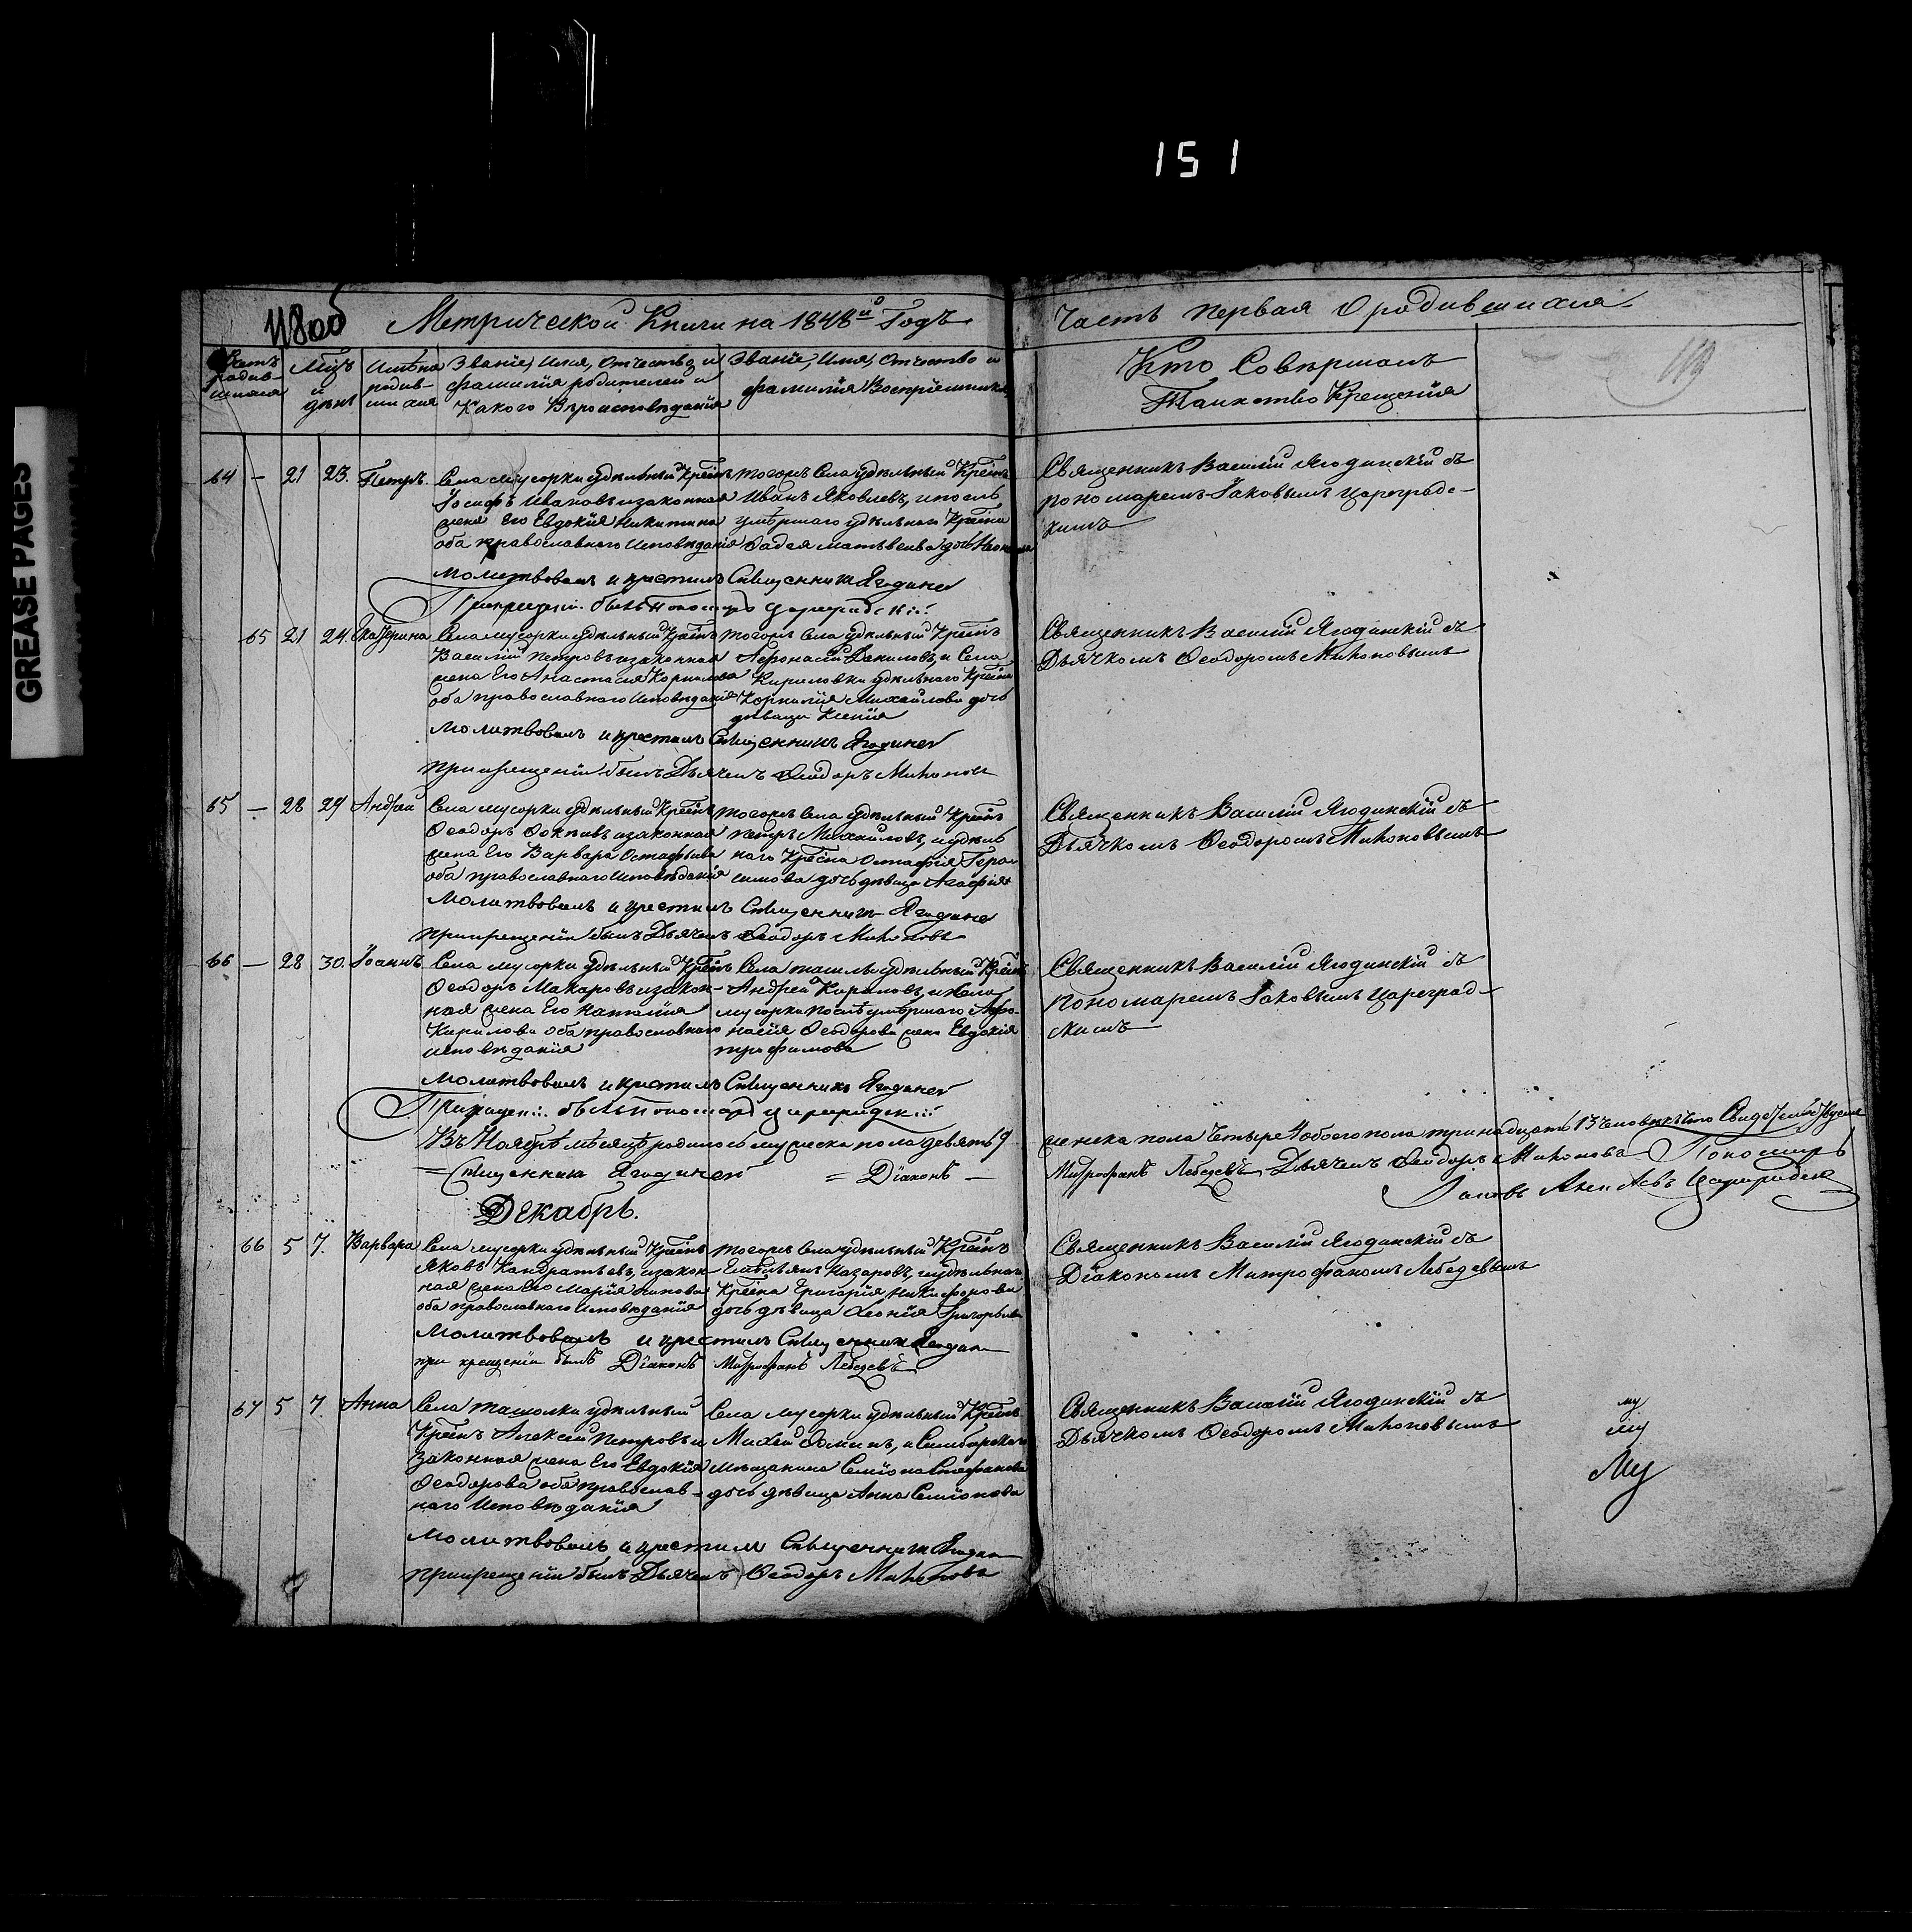 151
GREASE PAGES
480об
Метрической Книги на 1848й Годъ
Часть первая О родившихся
Счетъ родив- шихся
Мцъ и день
Имѣна родив- шихся
Званіе, Имя, Отчество, и фамилія родителей и Какого Вѣроисповѣданія
Званіе, Имя, Отчество и фамилія Воспріемниковъ
Кто Совершалъ
Таинство Крещенія
113
64 — 21 23. Петръ.
Села мусорки удѣльный Крѣнъ
Іосифъ Ивановъ и законная
жена Его Евдокія Никитина
оба православнаго Исповѣданія
тогожъ Села удѣльный Крѣнъ
Иванъ Яковлевъ, и послѣ
умѣршаго удѣльнаго Крѣнина
Фадея матвѣева дочь
Священникъ Василій Ягодинскій съ
пономаремъ Іаковымъ Цареградс-
кимъ
Молитвовалъ и крестилъ Священникъ Ягодинс
При крещеніи былъ Пономарь Цареградскій
65 21 24. Екатерина
Села мусорки удѣльный Крѣнъ
Василій Петровъ и законная
жена Его Анастасія Корнилова
оба православнаго Исповѣданія
тогожъ Села удѣльный Крѣнъ
Афонасій Даниловъ, и Села
Кириловки удѣльнаго Крѣнина
Корнилія Михайлова дочь
дѣвица Ксенія
Священникъ Василій Ягодинскій съ
Дьячкомъ Феодоромъ Тихоновымъ
Молитвовалъ и крестилъ Священникъ Ягодинс
При крещеніи былъ Дьячекъ Феодоръ Тихоновъ
65 — 28 29 Андрей
Села мусорки удѣльный Крѣнъ
Феодоръ Фокѣевъ и законная
жена Его Варвара Остафьева
оба православнаго Исповѣданія
тогожъ Села удѣльный Крѣнъ
петръ Михайловъ, и удѣль
наго Крѣсна Остафія Гера-
симова дочь дѣвица Агафія
Священникъ Василій Ягодинскій съ
Дьячкомъ Феодоромъ Тихоновымъ
Молитвовалъ и крестилъ Священникъ Ягодинс
При крещеніи былъ Дьячекъ Феодоръ Тихоновъ
66 — 28 30. Іоаннъ
Села мусорки удѣльный Крѣнъ
Феодоръ Макаровъ и закон-
ная жена Его Наталія
Кирилова оба православнаго
исповѣданія
Села удѣльный Крѣнъ
Андрей Кириловъ, и Села
мусорки послѣ умѣршаго Афо-
насія Феодорова жена Евдокія
трифимова
Священникъ Василій Ягодинскій съ
пономаремъ Іаковымъ Цареград-
скимъ
Молитвовалъ и крестилъ Священникъ Ягодинс
При крещеніи былъ Пономарь Цареградскій
Въ Ноябрѣ мѣсяцѣ родилось мужеска пола девять 9
женска пола Четыре 4 обоего пола тринадцать 13 человѣкъ Что Свидетельствуемъ
= Священникъ Ягодинскій = Діаконъ —
Митрофанъ Лебедевъ Дьячекъ Феодоръ Тихоновъ Пономарь
Іаковъ Цареградск
Декабрь.
66 5 7. Варвара
Села мусорки удѣльный Крѣнъ
Яковъ Кандратьевъ, и закон
ная жена Его Марія
оба православнаго Исповѣданія
тогожъ Села удѣльный Крѣнъ
Емѣльянъ Назаровъ, и удѣльнаго
Крѣсна Григорія Никифорова
дочь дѣвица Григорьева
Священникъ Василій Ягодинскій съ
Діакономъ Митрофаномъ Лебедевымъ
Молитвовалъ и крестилъ Священникъ Ягодин
при крещеніи былъ Діаконъ Митрофанъ Лебедевъ
67 5 7. Анна
Села ташолки удѣльный
Крѣнъ Алексей Петровъ и
законная жена Его Евдокія
Феодорова оба православ-
наго Исповѣданія
Села мусорки удѣльный Крѣнъ
Михей Фоминъ, и Симбирскаго
Мѣщанина Семіона Стефанова
дочь дѣвица Анна Семіонова
Священникъ Василій Ягодинскій съ
Дьячкомъ Феодоромъ Тихоновымъ
Молитвовалъ и крестилъ Священникъ Ягодин
При крещеніи былъ Дьячекъ Феодоръ Тихоновъ